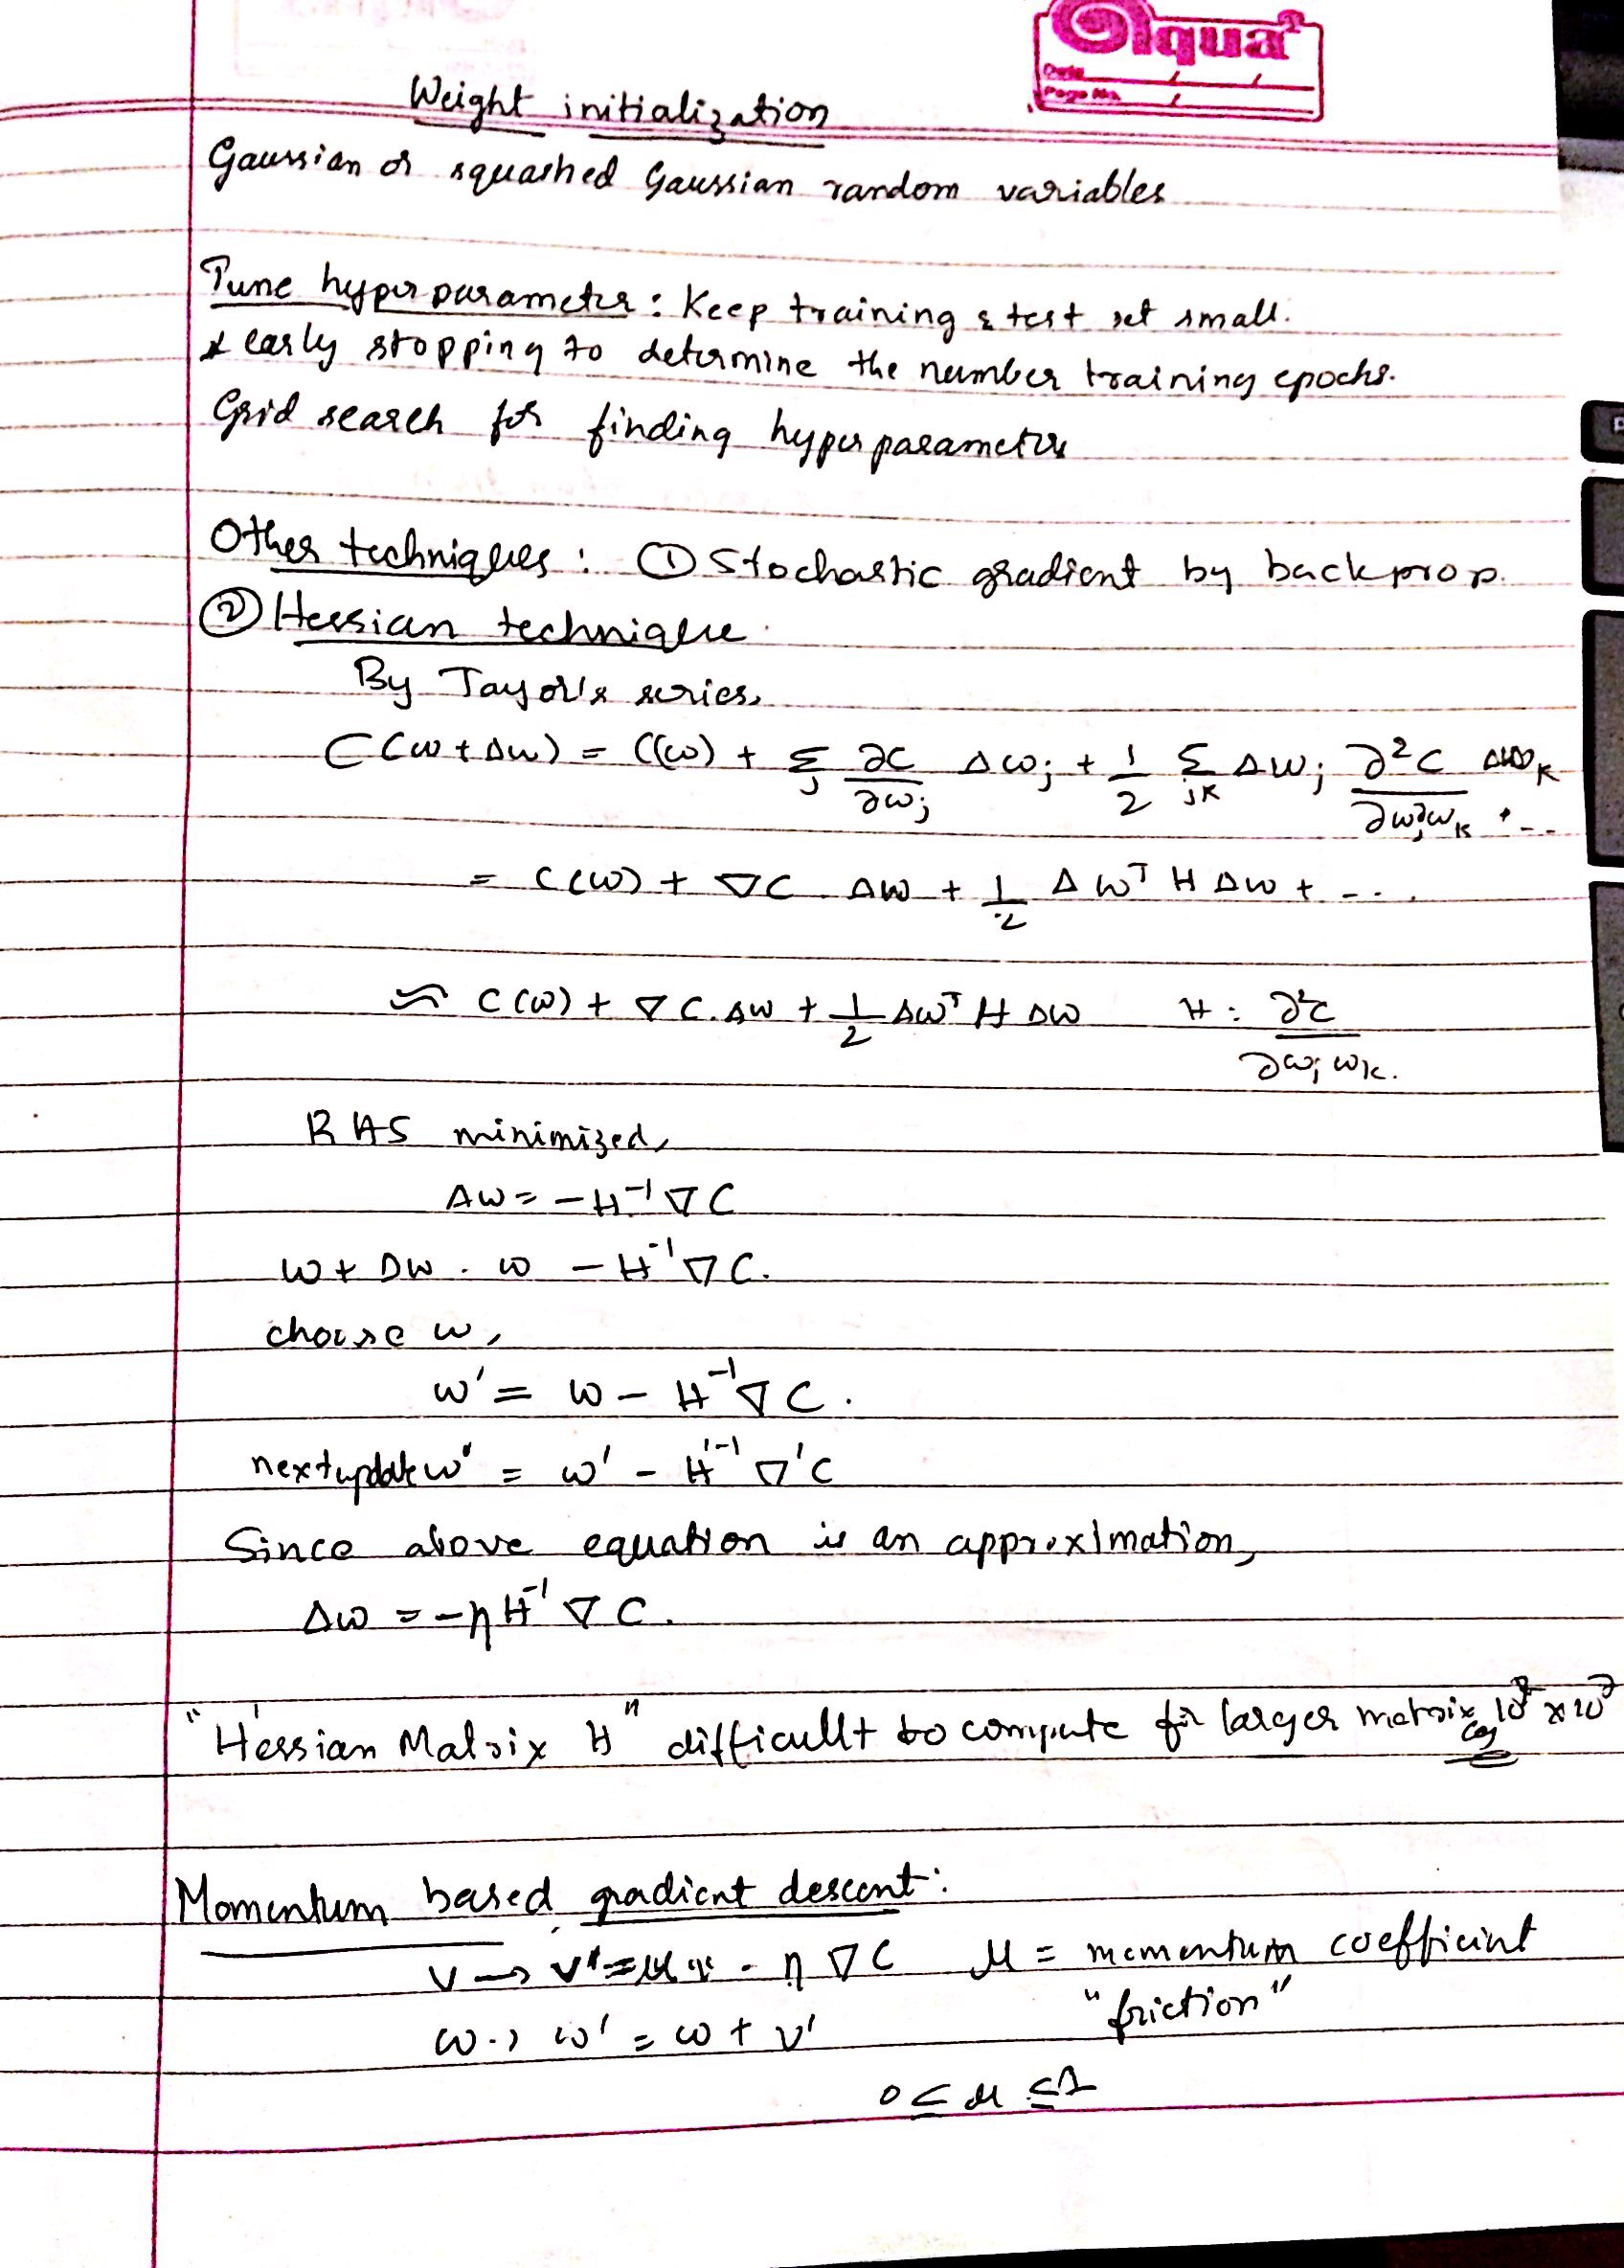 Aqua
Date / /
Page No. /
Weight initialization
Gaussian or squashed Gaussian random variables
Tune hyperparameter : Keep training & test set small.
* early stopping to determine the number training epochs.
Grid search for finding hyperparameters
Other techniques : ① Stochastic gradient by backprop.
② Hessian technique.
By Tayor's series,
C(w+Δw) = C(w) + Σ_j ∂C/∂w_j Δw_j + 1/2 Σ_jk Δw_j ∂²C/∂w_j∂w_k Δw_k + ...
= C(w) + ∇C Δw + 1/2 Δw^T H Δw + ...
≈ C(w) + ∇C.Δw + 1/2 Δw^T H Δw H : ∂²C/∂w_j w_k.
RHS minimized,
Δw = -H^-1 ∇C
w + Δw = w - H^-1 ∇C.
choose w,
w' = w - H^-1 ∇C.
next update w'' = w' - H'^-1 ∇'C
Since above equation is an approximation,
Δw = -η H^-1 ∇C.
"Hessian Matrix H" difficullt to compute for larger matrix eg
Momentum based gradient descent :
v → v' = μv - η∇C μ = momentum coefficient
"friction"
w → w' = w + v'
0 ≤ μ ≤ 1